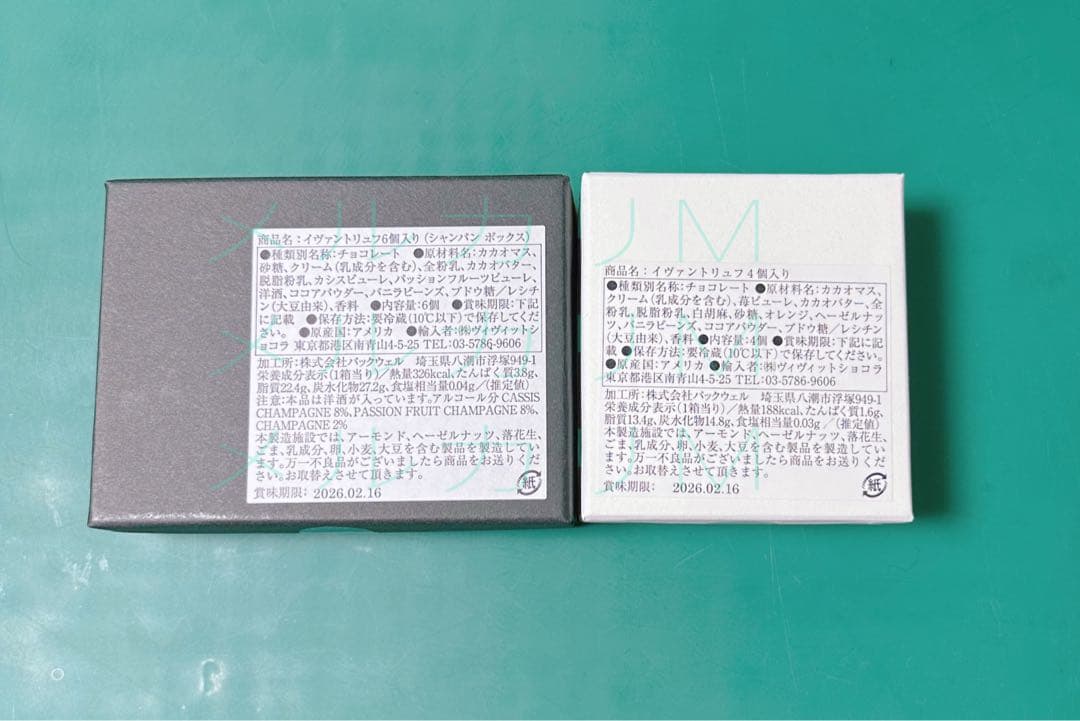 商品名：イヴァントリュフ6個入り（シャンパン ボックス）
●種類別名称：チョコレート　●原材料名：カカオマス、
砂糖、クリーム（乳成分を含む）、全粉乳、カカオバター、
脱脂粉乳、カシスピューレ、パッションフルーツピューレ、
洋酒、ココアパウダー、バニラビーンズ、ブドウ糖／レシチ
ン（大豆由来）、香料　●内容量：6個　●賞味期限：下記
に記載　●保存方法：要冷蔵（10℃以下）で保存してくだ
さい。　●原産国：アメリカ　●輸入者：㈱ヴィヴィットショ
コラ 東京都港区南青山4-5-25 TEL：03-5786-9606
加工所：株式会社パックウェル　埼玉県八潮市浮塚949-1
栄養成分表示（1箱当り）／熱量326kcal、たんぱく質3.8g、
脂質22.4g、炭水化物27.2g、食塩相当量0.04g／（推定値）
注意：本品は洋酒が入っています。アルコール分 CASSIS
CHAMPAGNE 8%、PASSION FRUIT CHAMPAGNE 8%、
CHAMPAGNE 2%
本製造施設では、アーモンド、ヘーゼルナッツ、落花生、
ごま、乳成分、卵、小麦、大豆を含む製品を製造してい
ます。万一不良品がございましたら商品をお送りくだ
さい。お取替えさせて頂きます。
賞味期限： 2026.02.16
紙
商品名：イヴァントリュフ４個入り
●種類別名称：チョコレート ●原材料名：カカオマス、
クリーム（乳成分を含む）、苺ピューレ、カカオバター、全
粉乳、脱脂粉乳、白胡麻、砂糖、オレンジ、ヘーゼルナッ
ツ、バニラビーンズ、ココアパウダー、ブドウ糖／レシチン
（大豆由来）、香料 ●内容量：4個 ●賞味期限：下記に記
載 ●保存方法：要冷蔵（10℃以下）で保存してください。
●原産国：アメリカ ●輸入者：㈱ヴィヴィットショコラ
東京都港区南青山4-5-25 TEL：03-5786-9606
加工所：株式会社パックウェル　埼玉県八潮市浮塚949-1
栄養成分表示（1箱当り）／熱量188kcal、たんぱく質1.6g、
脂質13.4g、炭水化物14.8g、食塩相当量0.03g ／（推定値）
本製造施設では、アーモンド、ヘーゼルナッツ、落花生、
ごま、乳成分、卵、小麦、大豆を含む製品を製造していま
す。万一不良品がございましたら商品をお送りくださ
い。お取替えさせて頂きます。
賞味期限：　2026.02.16
紙